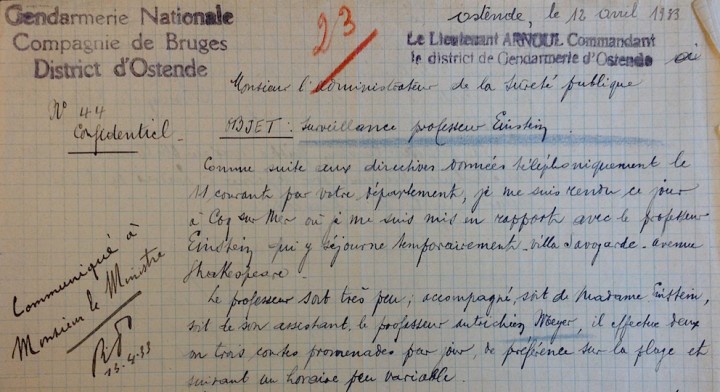 Gendarmerie Nationale
Compagnie de Bruges
District d'Ostende
23
Ostende, le 12 avril 1933
Le Lieutenant ARNOUL Commandant
le district de Gendarmerie d'Ostende à
Monsieur l'administrateur de la Sûreté publique
N° 44
Confidentiel.
OBJET: Surveillance professeur Einstein
Comme suite aux directives données téléphoniquement le
11 courant par votre département, je me suis rendu ce jour
à Coq sur Mer où je me suis mis en rapport avec le professeur
Einstein qui y séjourne temporairement villa Savoyarde avenue
Shakespeare.
Le professeur sort très peu; accompagné, soit de Madame Einstein,
soit de son assistant, le professeur autrichien Meyer, il effectue deux
ou trois courtes promenades par jour, de préférence sur la plage et
suivant un horaire peu variable.
Communiqué à
Monsieur le Ministre
13-4-33